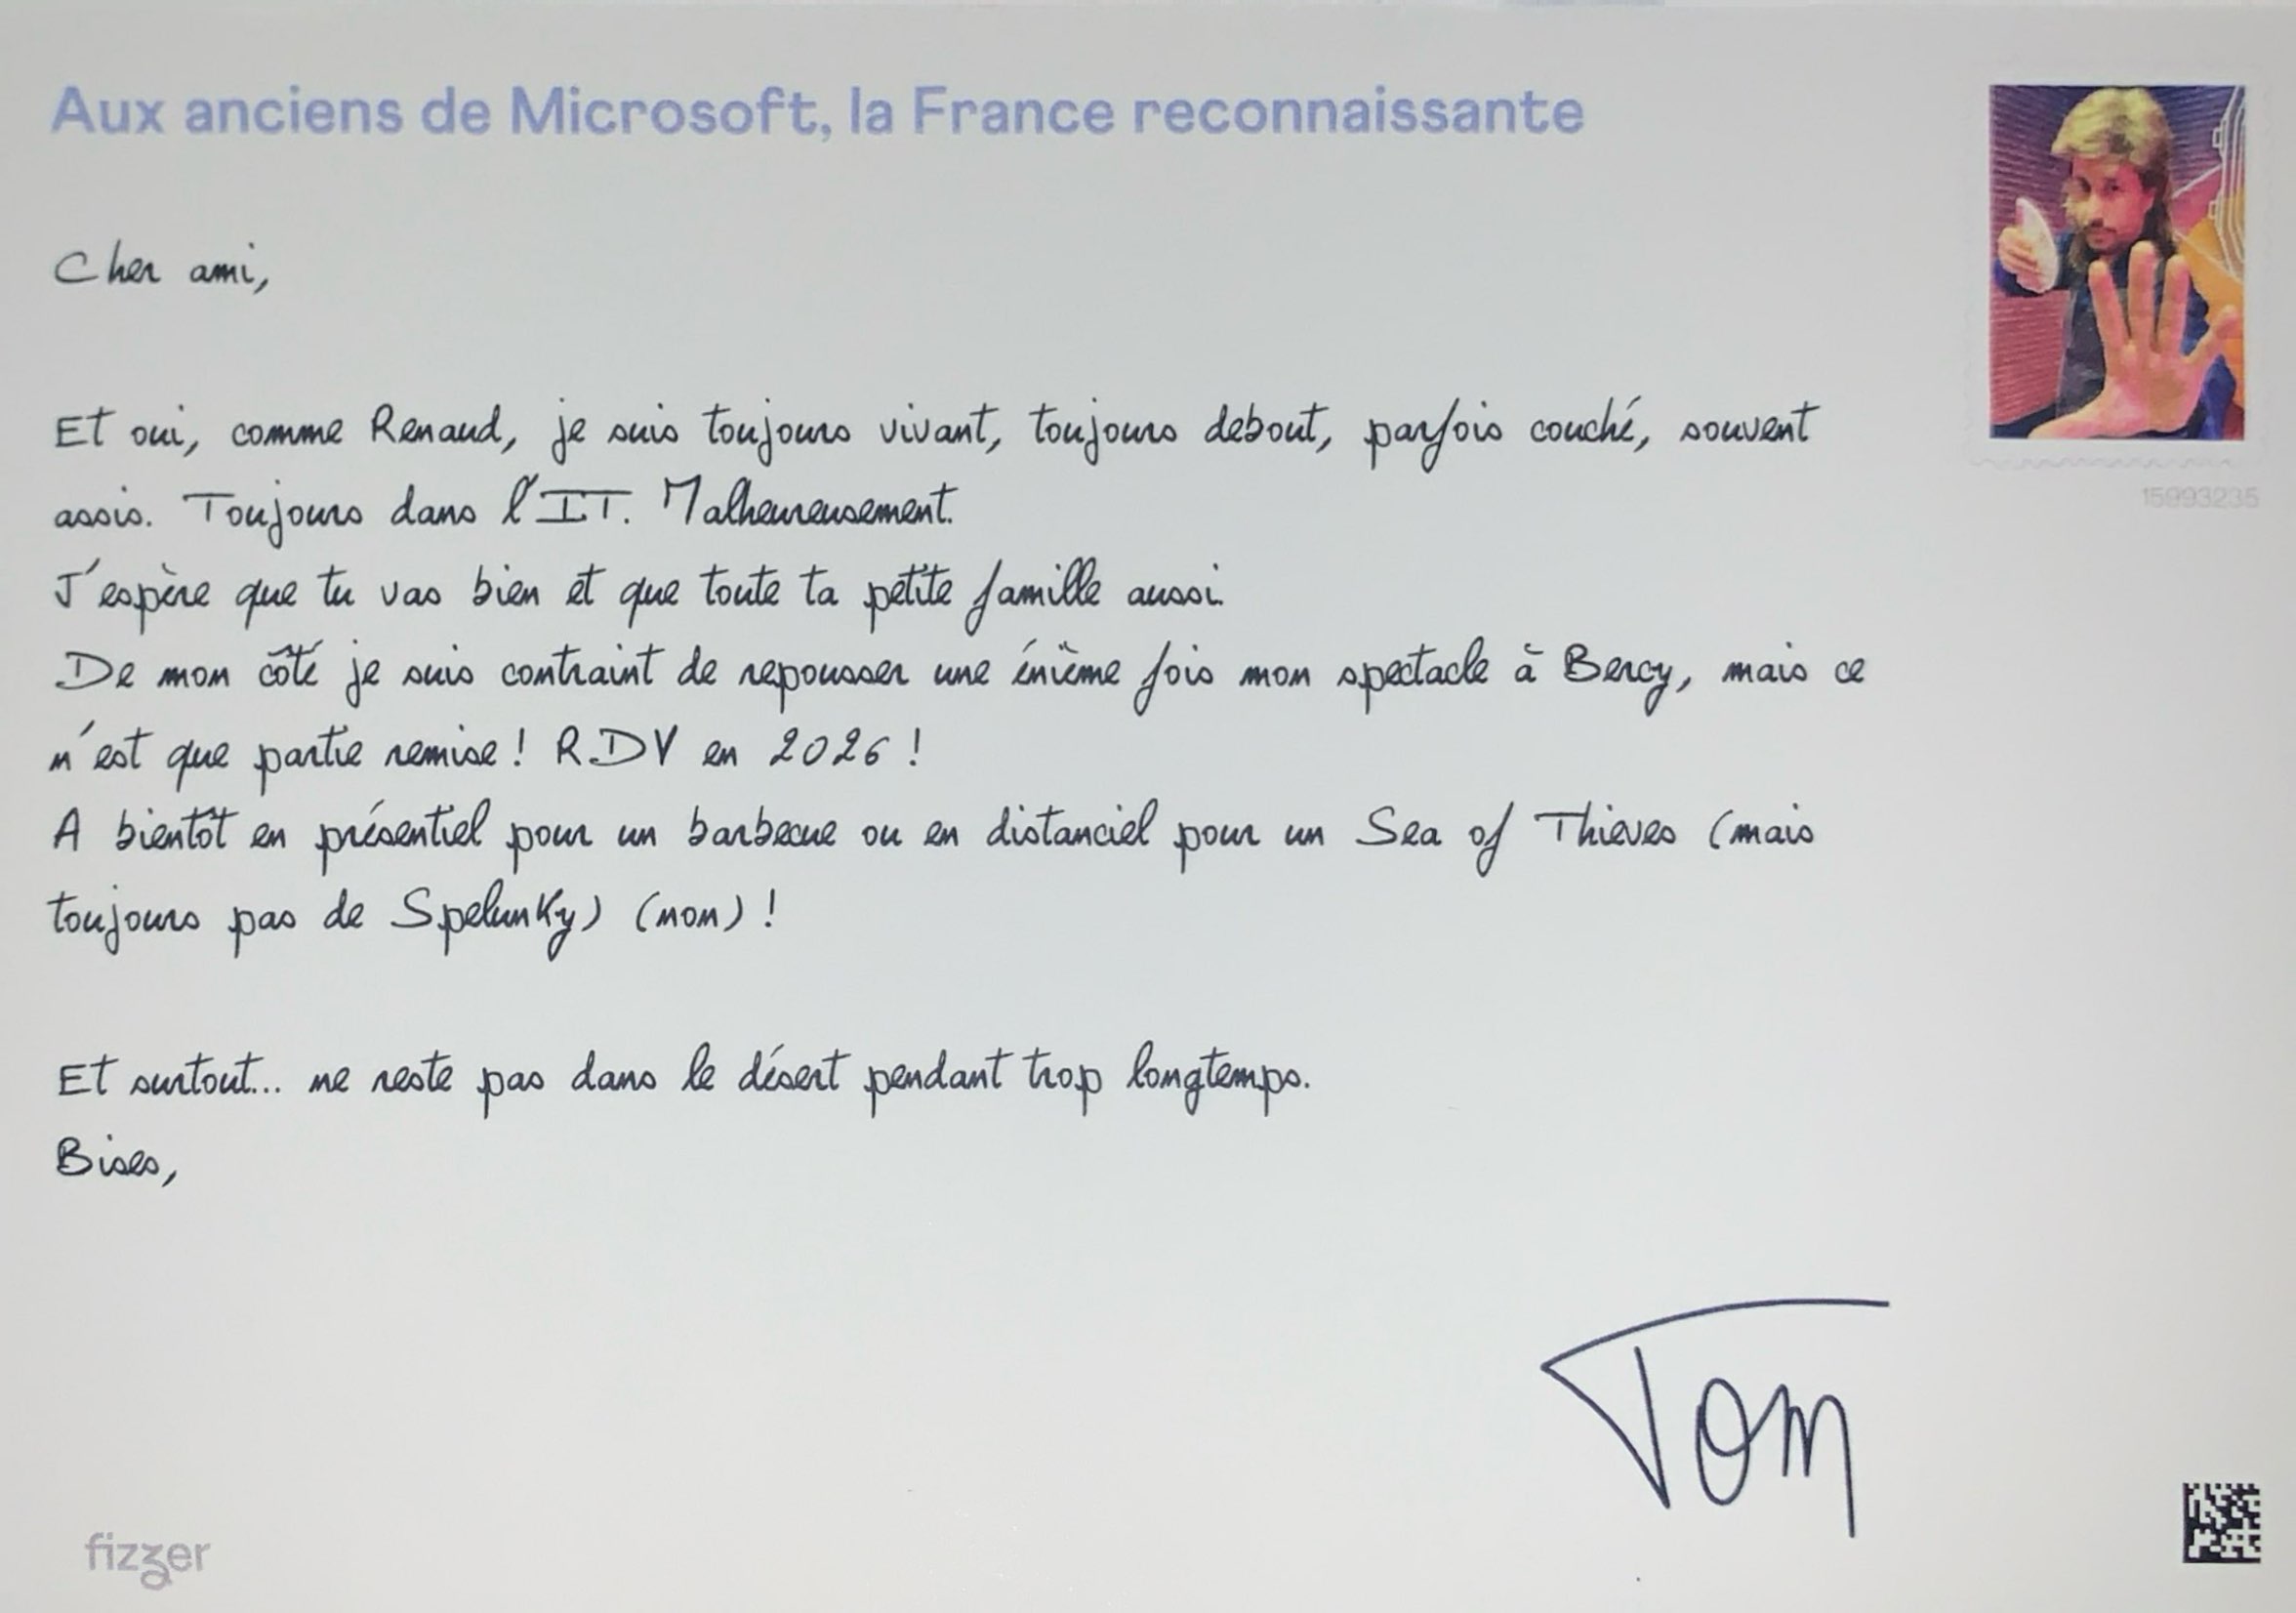 Aux anciens de Microsoft, la France reconnaissante
Cher ami,
Et oui, comme Renaud, je suis toujours vivant, toujours debout, parfois couché, souvent
assis. Toujours dans l'IT. Malheureusement.
J'espère que tu vas bien et que toute ta petite famille aussi.
De mon côté je suis contraint de repousser une énième fois mon spectacle à Bercy, mais ce
n'est que partie remise ! RDV en 2026 !
A bientôt en présentiel pour un barbecue ou en distanciel pour un Sea of Thieves (mais
toujours pas de Spelunky) (non) !
Et surtout... ne reste pas dans le désert pendant trop longtemps.
Bises,
Tom
15993235
fizzer